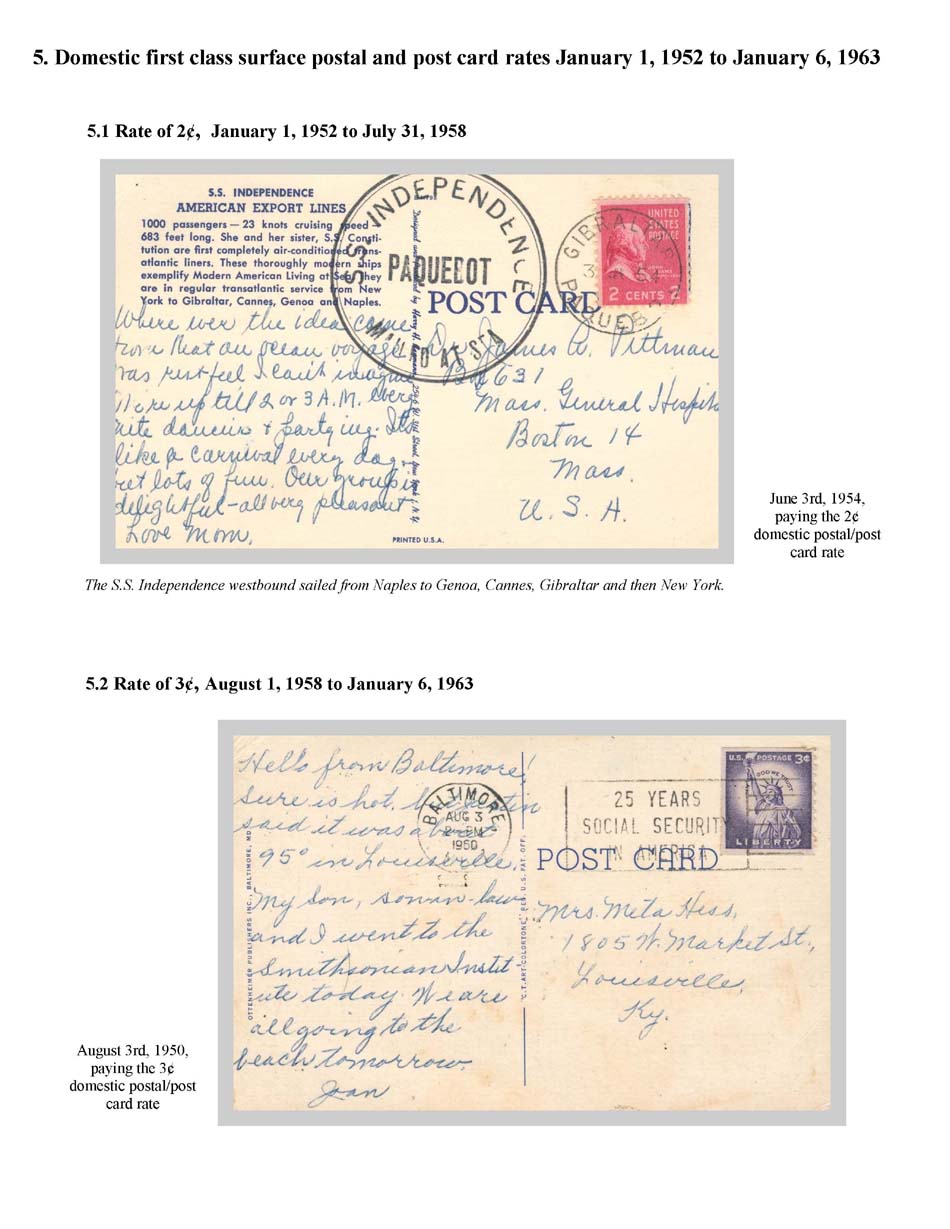 5. Domestic first class surface postal and post card rates January 1, 1952 to January 6, 1963
5.1 Rate of 2¢, January 1, 1952 to July 31, 1958
S.S. INDEPENDENCE
AMERICAN EXPORT LINES
1000 passengers — 23 knots cruising speed —
683 feet long. She and her sister, S.S. Consti-
tution are first completely air-conditioned trans-
atlantic liners. These thoroughly modern ships
exemplify Modern American Living at Sea. They
are in regular transatlantic service from New
York to Gibraltar, Cannes, Genoa and Naples.
S.S. INDEPENDENCE
PAQUEBOT
MAILED AT SEA
POST CARD
GIBRALTAR
PAQUEBOT
UNITED
STATES
POSTAGE
2 CENTS 2
Where ever the idea came
from that an ocean voyage
was restfeel I can't imagine
We're up till 2 or 3 A.M. every
nite dancing & partying. It's
like a carnival every day.
lots of fun. Our group is
delightful - all very pleasant
Love Mom.
James W. Pittman
Box 631
Mass. General Hospit
Boston 14
Mass.
U. S. A.
PRINTED U.S.A.
June 3rd, 1954,
paying the 2¢
domestic postal/post
card rate
The S.S. Independence westbound sailed from Naples to Genoa, Cannes, Gibraltar and then New York.
5.2 Rate of 3¢, August 1, 1958 to January 6, 1963
Hello from Baltimore!
Sure is hot.
said it was about
95° in Louisville.
My son, son-in-law
and I went to the
Smithsonian Instit-
ute today. We are
all going to the
beach tomorrow.
Joan
BALTIMORE
AUG 3
PM
1960
25 YEARS
SOCIAL SECURITY
IN AMERICA
U.S. POSTAGE 3¢
IN GOD WE TRUST
LIBERTY
POST CARD
Mrs. Meta Hess,
1805 W. Market St.,
Louisville,
Ky.
OTTENHEIMER PUBLISHERS INC., BALTIMORE, MD.
"C.T. ART-COLORTONE" REG. U.S. PAT. OFF.
August 3rd, 1950,
paying the 3¢
domestic postal/post
card rate